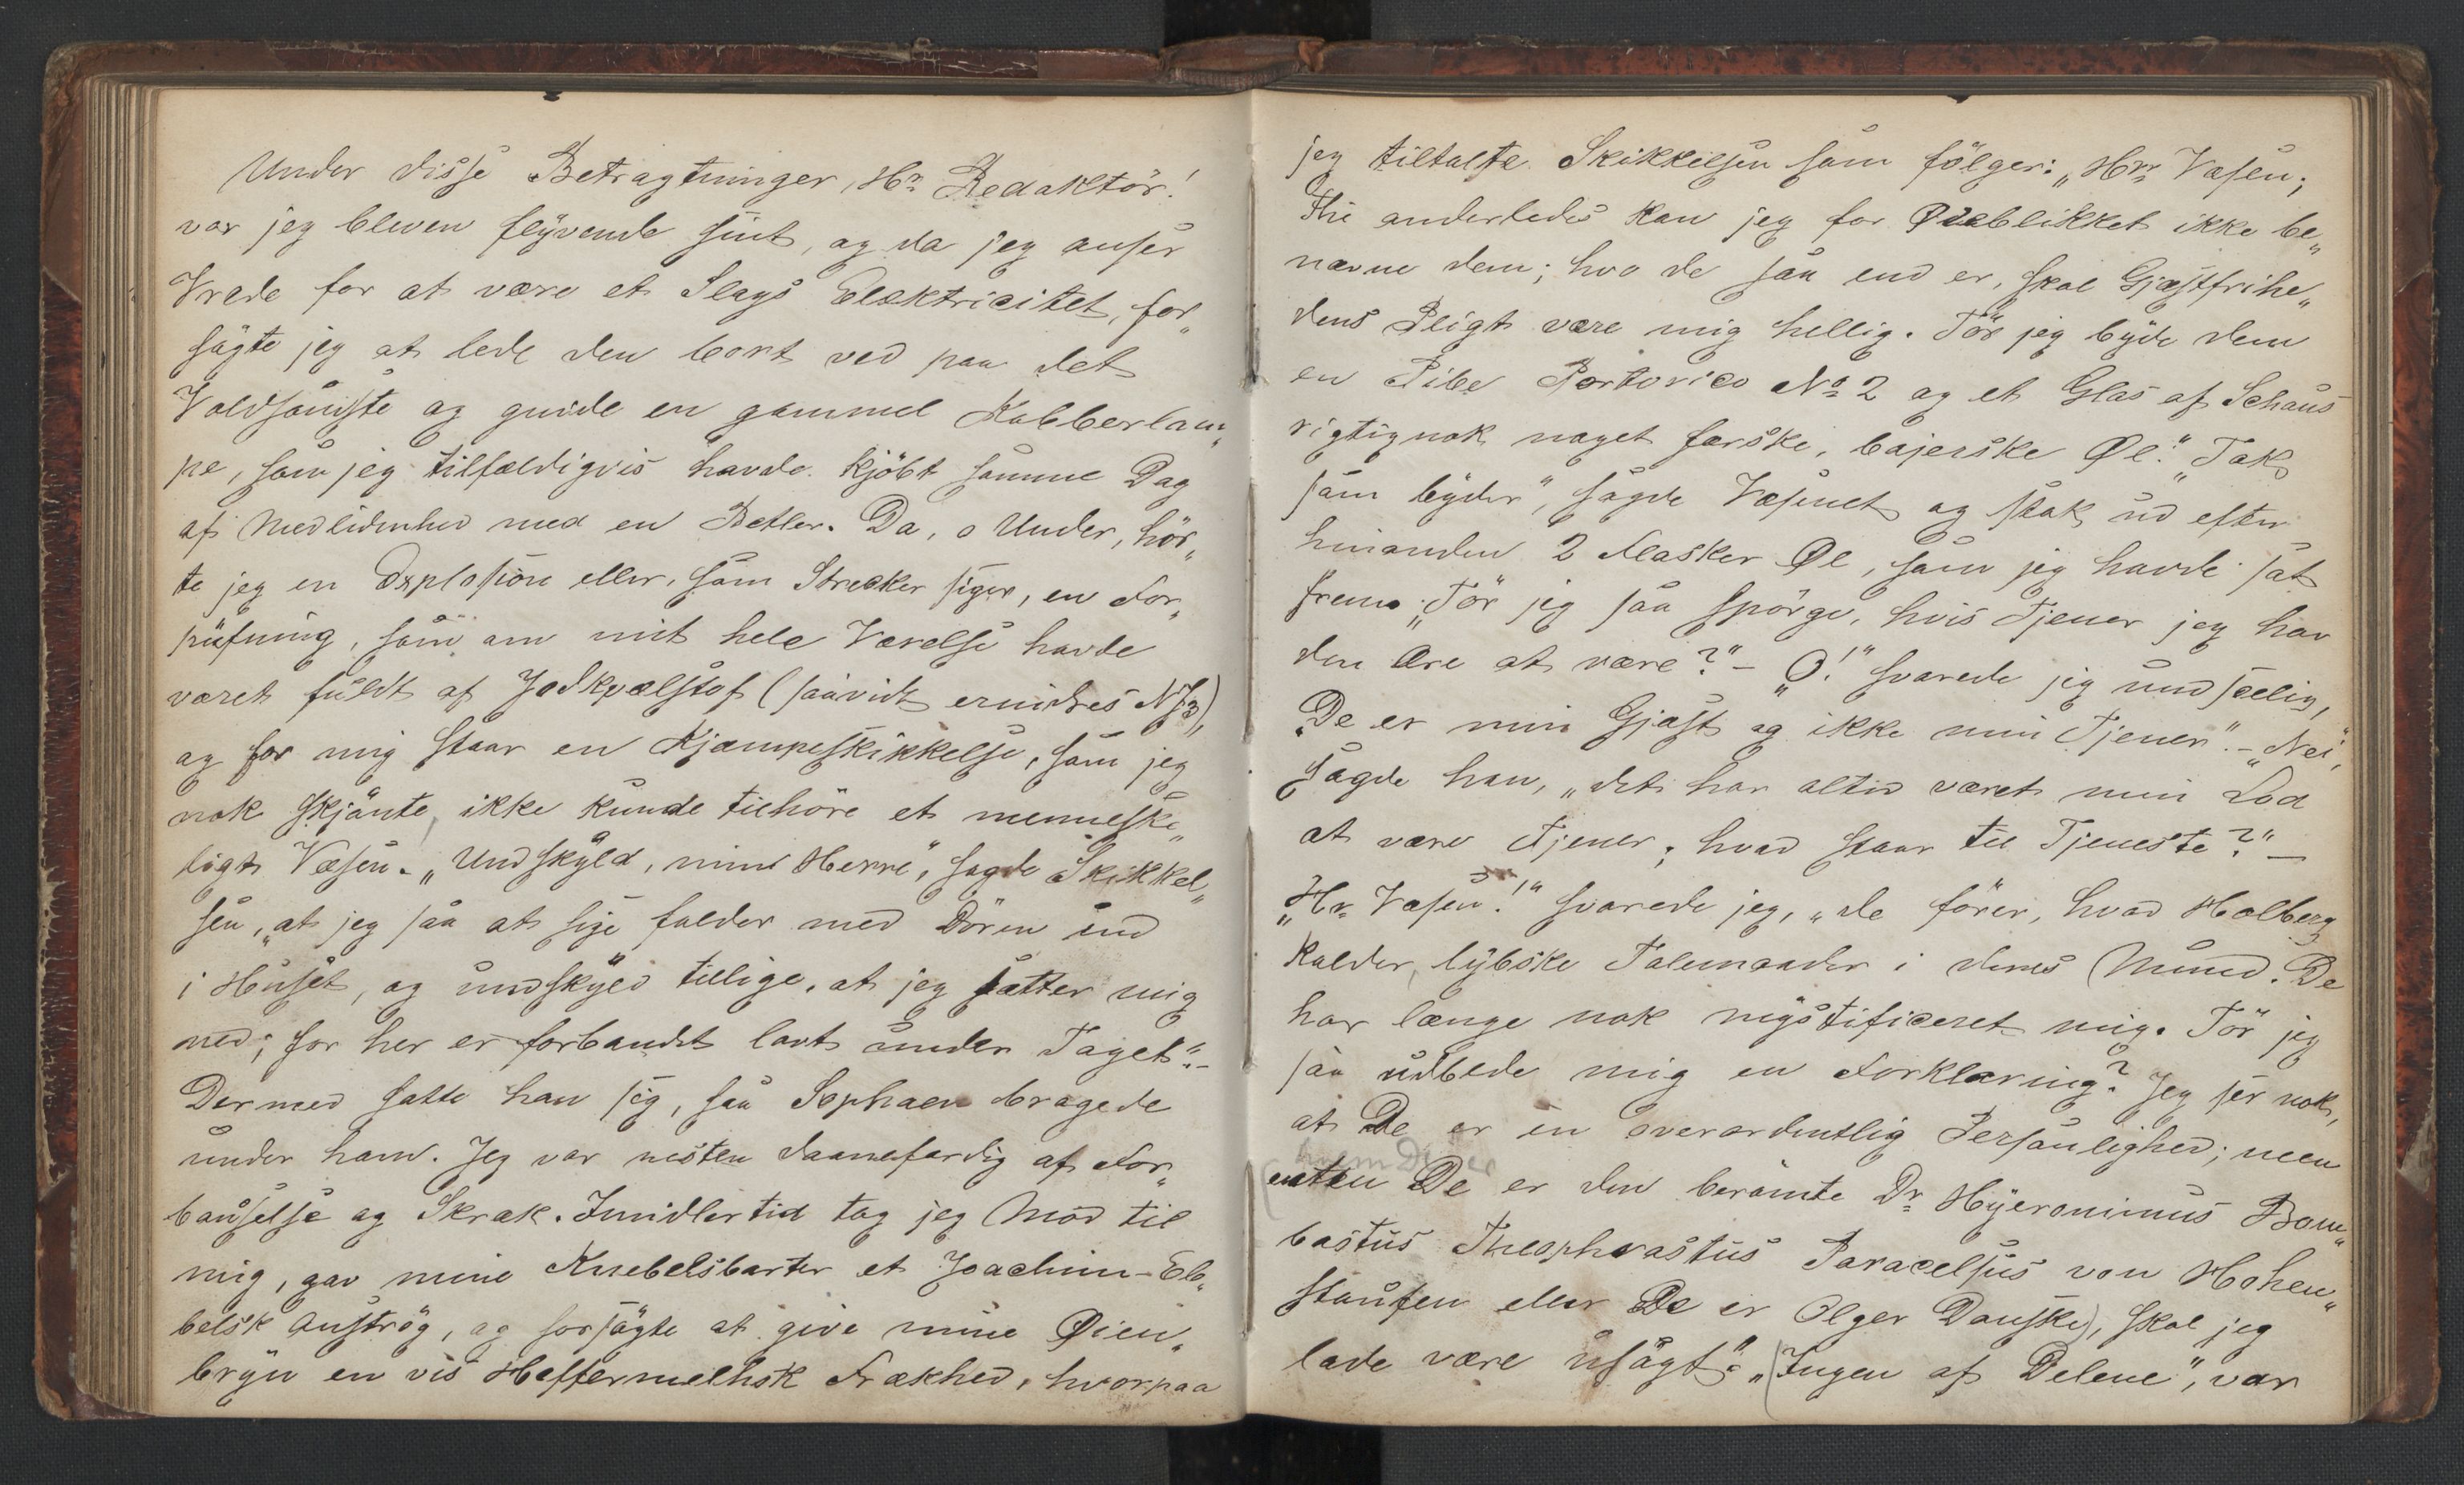 Under disse Betragtninger, Hr. Redaktör!
var jeg bleven flyvende sint, og da jeg anser
Vrede for at være et Slags Elektricitet, for„
sögte jeg at lede den bort ved paa det
Voldsomste og gnide en gammel Kobberlam„
pe, som jeg tilfældigvis havde kjöbt samme Dag
af Medlidenhed med en Betler. Da, o Under, hör„
te jeg en Explosion eller, som Strecker siger, en For„
pufning, som om mit hele Værelse havde
været fuldt af Jodkvælstof (saavidt erindres NJ3),
og for mig staar en Kjæmpeskikkelse, som jeg
nok skjönte, ikke kunde tilhöre et menneske„
ligt Væsen. „Undskyld, min Herre", sagde Skikkel„
sen, „at jeg saa at sige falder med Dören ind
i Huset, og undskyld tillige, at jeg sætter mig
ned; for her er forbandet lavt under Taget".-
Dermed satte han sig, saa Sophaen bragede
under ham. Jeg var næsten daaneferdig af For„
bauselse og Skræk. Imidlertid tog jeg Mod til
mig, gav mine Knebelsbarter et Joachim-Eb„
belsk Anströg, og forsögte at give mine Øien„
bryn en vis Heffermelhsk Frækhed, hvorpaa
jeg tiltalte Skikkelsen som fölger: „Hrr Væsen;
thi anderledes kan jeg for Øieblikket ikke be„
nævne dem; hvo de saa end er, skal Gjæstfrihe„
dens Pligt være mig hellig. Tör jeg byde dem
en Pibe Portorico No 2 og et Glas af Schous
rigtignok noget færske, bajerske Øl." „Tak
som byder", sagde Væsenet og stak ud efter
hinanden 2 Flasker Øl, som jeg havde sat
frem. „Tör jeg saa spörge, hvis Tjener jeg har
den Ære at være?" – „O!" svarede jeg undseelig,
„De er min Gjæst og ikke min Tjener". – „Nei",
sagde han, „det har altid været min Lod
at være Tjener; hvad staar til Tjeneste?" –
„Hr. Væsen!" svarede jeg, „de förer, hvad Holberg
kalder, lybske Talemaader i deres Mund. De
har længe nok mystificeret mig. Tör jeg
saa udbede mig en Forklaring? Jeg ser nok,
at De er en overordentlig Personlighed; men
hvem De er
(enten De er den berömte Dr. Hyeronimus Bom„
bastus Theophrastus Paracelsus von Hohen„
staufen eller De er Olger Danske), skal jeg
lade være usagt." „(Ingen af Delene", var